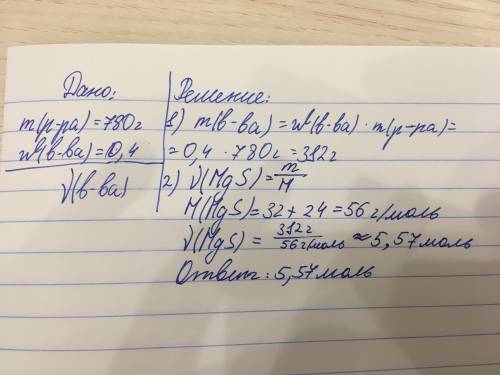 Дано:
m(р-ра)=780г
w(в-ва)=0,4
ν(в-ва)
Решение:
1) m(в-ва)=w(в-ва)·m(р-ра)=
=0,4·780г=312г
2) ν(MgS)=m/M
M(MgS)=32+24=56г/моль
ν(MgS)=312г/56г/моль≈5,57моль
Ответ: 5,57моль